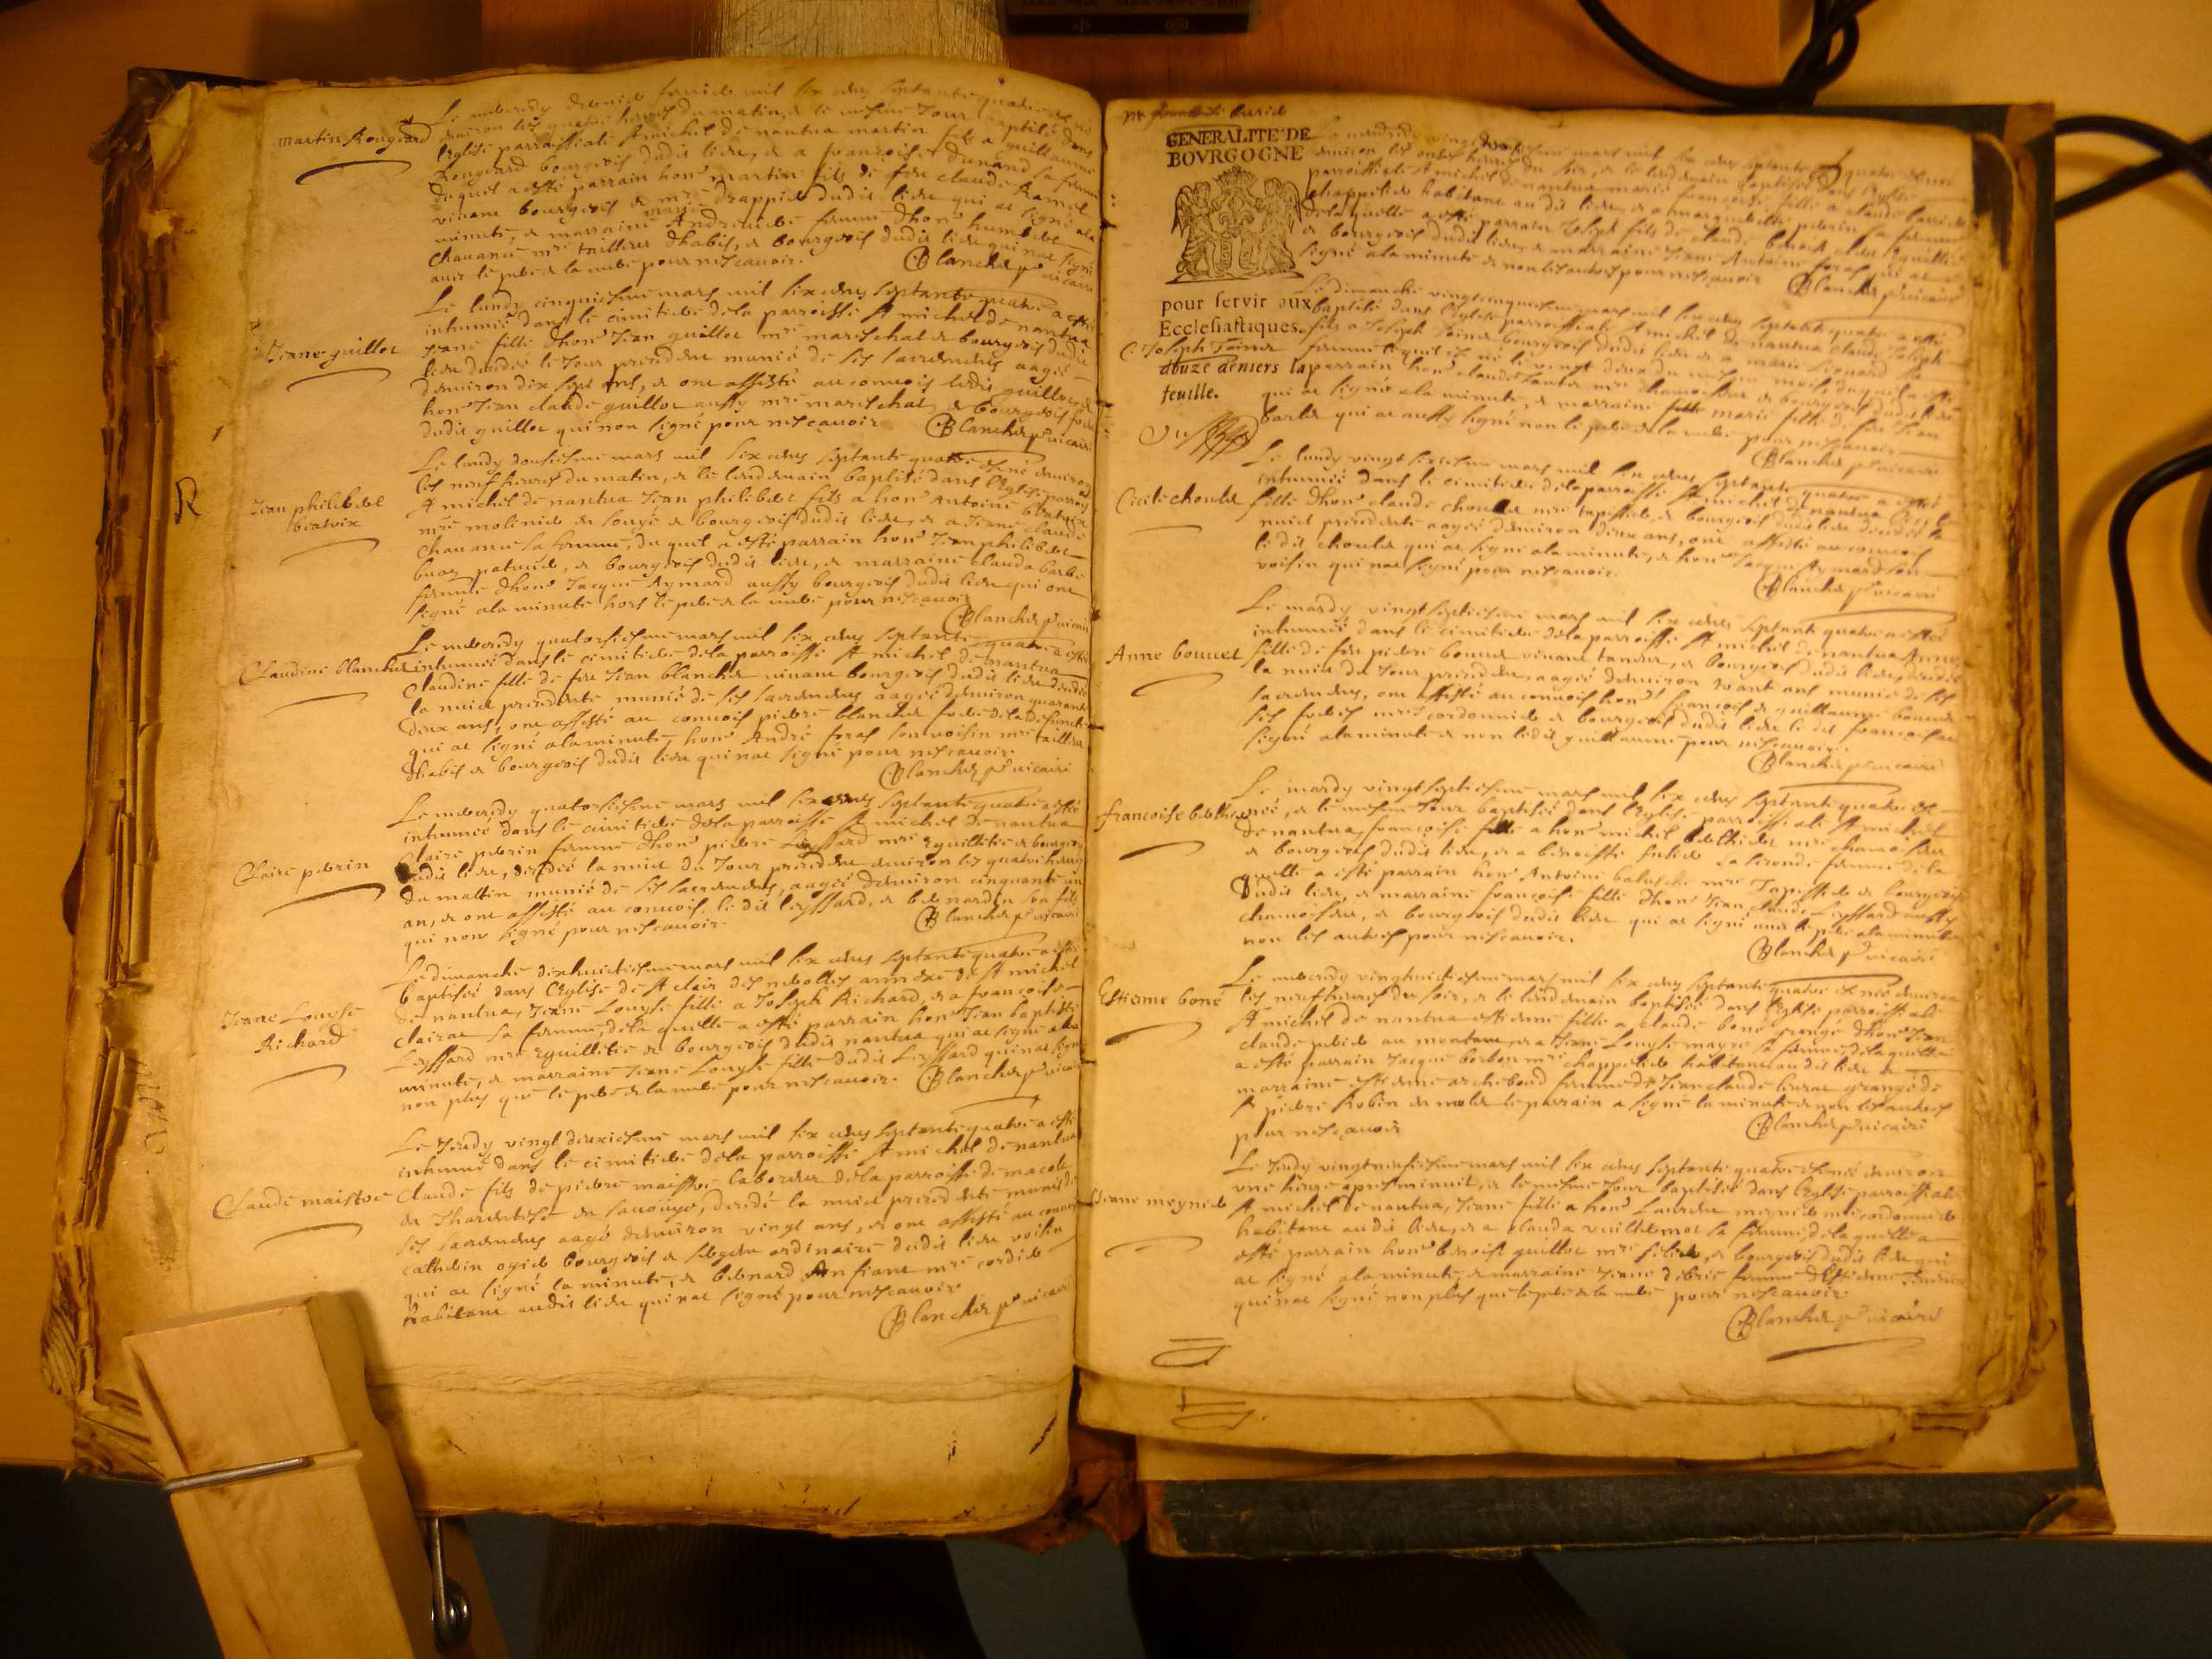 martin Rougeard
Le mecredy dernier feurier mil six cens septante quatre est né
enuiron les quatre heures du matin, & le mesme Jour baptisé dans
leglise parroissiale St michel de nantua martin fils a guillaume
Rougeard bourgeois dudit lieu, & a francoise dunand sa femme
duquel a esté parrain hon. martin fils de feu claude Ramel
viuant bourgeois & mre drappier dudit lieu qui at signé a la
minute, & marraine marie Andreuie femme dhon. humbert
chauanu mre tailleur dhabis, & bourgeois dudit lieu qui nat signé
auec le pere & la mere pour ne scauoir.
Blanchet p. vicaire
Jeane guillot
Le lundy cinquiesme mars mil six cens septante quatre a esté
inhumée dans le cimitiere de la parroisse St michel de nantua
Jeane fille dhon. Jean guillot mre mareschal & bourgeois dudit
lieu decedée le Jour precedent munie de ses sacremens aagée
denuiron dix sept ans, & ont assisté au conuois ledit guillot, &
hon. Jean claude guillot aussy mre mareschal, & bourgeois
dudit guillot qui nont signé pour ne scauoir
Blanchet p. vicaire
Jean philibert
beatrix
Le lundy douziesme mars mil six cens septante quatre est né enuiron
les neuf heures du matin, & le lendemain baptisé dans leglise parroiss.
St michel de nantua Jean philibert fils a hon. Antoine beatrix
mre molinier en soye & bourgeois dudit lieu, & a Jeane claude
chauanu sa femme, du quel a esté parrain hon. Jean philibert
, & bourgeois dudit lieu, & marraine clauda barbe
femme dhon. Jacque Aymard aussy bourgeois dudit lieu qui ont
signé a la minute hors le pere & la mere pour ne scauoir
Blanchet p. vicaire
Claudine blanchet
Le mecredy quatorsiesme mars mil six cens septante quatre a esté
inhumée dans le cimitiere de la parroisse St michel de nantua
Claudine fille de feu Jean blanchet viuant bourgeois dudit lieu decedée
la nuict precedente munie de ses sacremens aagée denuiron quarante
deux ans, ont assisté au conuois pierre blanchet frere de la defuncte
qui at signé a la minute, hon. André foras son voisin mre tailleur
dhabis & bourgeois dudit lieu qui nat signé pour ne scauoir.
Blanchet p. vicaire
Claire perrin
Le mecredy quatorsiesme mars mil six cens septante quatre a esté
inhumée dans le cimitiere de la parroisse St michel de nantua
Claire perrin femme dhon. pierre Leyssard mre eguillitier & bourgeois
dudit lieu, decedée la nuict du Jour precedent enuiron les quatre heures
du mattin munie de ses sacremens, aagée denuiron cinquante un
an, & ont assisté au conuois, le dit leyssard, & bernardin son fils
qui nont signé pour ne scauoir.
Blanchet p. vicaire
Jeane Louyse
Richard
Le dimanche dixhuictiesme mars mil six cens septante quatre a esté
baptisée dans leglise de St clair des nerolles annexe de St michel
de nantua, Jeane Louyse fille a Joseph Richard, & a francoise
clairat sa femme, de la quelle a esté parrain hon. Jean baptiste
Leyssard mre eguillitier & bourgeois dudit nantua qui at signé a la
minute, & marraine Jeane Louyse fille dudit Leyssard qui nat signé
non plus que le pere & la mere pour ne scauoir.
Blanchet p. vicaire
Claude maistre
Le Jeudy vingt deuxiesme mars mil six cens septante quatre a esté
inhumé dans le cimitiere de la parroisse St michel de nantua
Claude fils de pierre maistre laboureur de la parroisse de macot
en Tharentaise en sauoye, decedé la nuict precedente munis de
ses sacremens aagé denuiron vingt ans, & ont assisté au conuois
cathelin ogier bourgeois & sergent ordinaire dudit lieu voisin
qui at signé la minute, & bernard mre cordier
habitant audit lieu qui nat signé pour ne scauoir
Blanchet p. vicaire
GENERALITE DE
BOVRGOGNE
pour servir aux
Ecclesiastiques
douze deniers la
feuille.
Le vendredy vingt mars mil six cens septante quatre est née
enuiron les onze heures du soir, & le lendemain baptisée dans leglise
parroissiale St michel de nantua marie francoise fille a claude
chappelier habitant au dit lieu, & a marguerite perrin sa femme
de la quelle a esté parrain Joseph fils de claude benoit
& bourgeois dudit lieu, & marraine Jeane Antoine foras qui at
signé a la minute & non les autres pour ne scauoir
Blanchet p. vicaire
C. Joseph Toinet
Le dimanche vingtcinquiesme mars mil six cens septante quatre a esté
baptisé dans leglise parroissiale St michel de nantua claude Joseph
fils a Joseph Toinet bourgeois dudit lieu & a marie Leonard sa
femme lequel est né le vingt du mesme mois duquel a esté
parrain hon. claude mre chamoiseur & bourgeois dudit lieu
qui at signé a la minute, & marraine marie fille de feu Jean
barlet qui at aussy signé non le pere & la mere pour ne scauoir
Blanchet p. vicaire
Cecile choulet
Le lundy vingt sixiesme mars mil six cens septante quatre a esté
inhumée dans le cimitiere de la parroisse St michel de nantua Cecile
fille dhon. claude choulet mre tapissier, & bourgeois dudit lieu decedée la
nuict precedente aagée denuiron deux ans, ont assisté au conuois
le dit choulet qui at signé a la minute, & hon. Jacque Aymard son
voisin qui nat signé pour ne scauoir.
Blanchet p. vicaire
Anne bouuet
Le mardy vingtseptiesme mars mil six cens septante quatre a esté
inhumée dans le cimitiere de la parroisse St michel de nantua Anne
fille de feu pierre bouuet viuant taneur, & bourgeois dudit lieu, decedée
la nuict du Jour precedent, aagée denuiron ans munie de ses
sacremens, ont assisté au conuois hon. francois & guillaume bouuet
ses freres mres cordonniers & bourgeois dudit lieu le dit francois at
signé a la minute & non ledit guillaume pour ne scauoir.
Blanchet p. vicaire
francoise berthier
Le mardy vingtseptiesme mars mil six cens septante quatre est
née, & le mesme Jour baptisée dans leglise parroissiale St michel
de nantua, francoise fille a hon. michel berthier mre chamoiseur
& bourgeois dudit lieu, & a benoiste sa seconde femme de la
quelle a esté parrain hon. Antoine mre Tapissier & bourgeois
dudit lieu, & marraine francoise fille dhon. Jean claude Leyssard aussy
chamoiseur, & bourgeois dudit lieu qui at signé auec le pere a la minute
non les autres pour ne scauoir.
Blanchet p. vicaire
Estienne boné
Le mecredy vingthuictiesme mars mil six cens septante quatre est née enuiron
les neuf heures du soir, & le lendemain baptisée dans leglise parroissiale
St michel de nantua estienne fille a claude boné grangé dhon. Jean
claude au montaux, & a Jeane Louyse mayre sa femme de la quelle
a esté parrain Jacque borbon mre chappelier habitant au dit lieu &
marraine estienne femme de Jean claude grangé de
Sr pierre Robin & le parrain a signé la minute & non les autres
pour ne scauoir
Blanchet p. vicaire
Jeane meynier
Le Jeudy vingtneufiesme mars mil six cens septante quatre est née enuiron
une heure apres minuit, & le mesme Jour baptisée dans leglise parroissiale
St michel de nantua, Jeane fille a hon. Laurent meynier mre cordonnier
habitant audit lieu, & a clauda vuillermoz sa femme de la quelle a
esté parrain hon. benoist guillot mre sellier, & bourgeois dudit lieu qui
at signé a la minute, & marraine Jeane femme dEstienne
qui nat signé non plus que le pere & la mere pour ne scauoir.
Blanchet p. vicaire